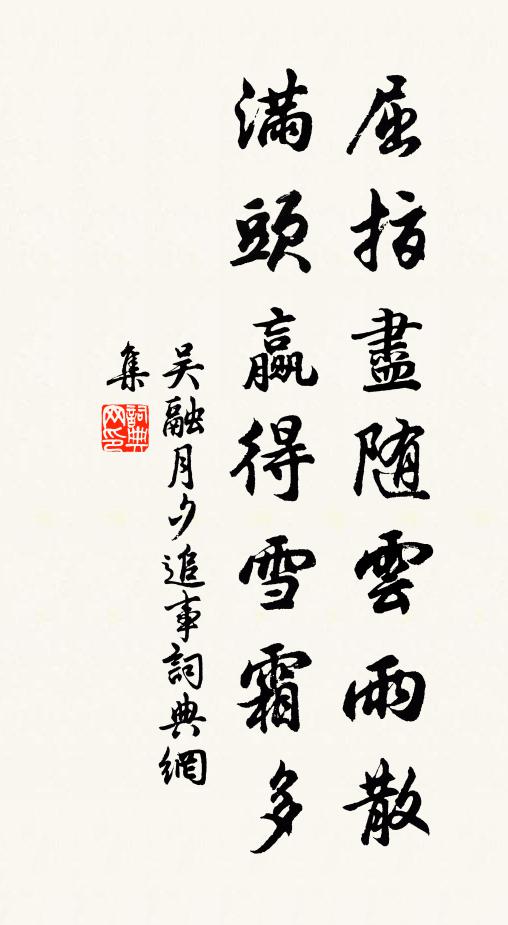 屈指盡隨雲雨散
滿頭贏得雪霜多
吳融月夕追事詞典網
集
詞典網印